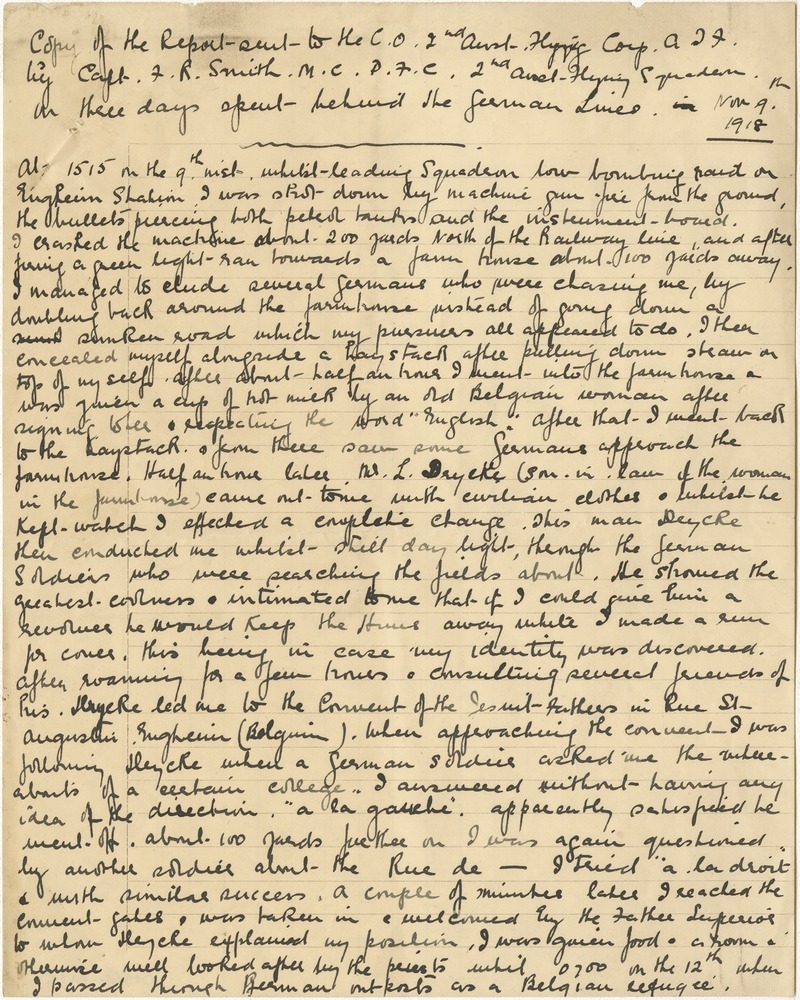 Copy of the Report sent to the C.O. 2nd Aust. Flying Corp. A I F.
by Capt. F. R. Smith. M.C. D.F.C. 2nd Aust Flying Squadron.
on three days spent behind the German Lines. in Nov 9.th
1918
At 1515 on the 9th inst. whilst leading Squadron low bombing raid on
Enghein Station I was shot down by machine gun fire from the ground,
the bullets piercing both petrol tanks and the instrument board.
I crashed the machine about 200 yards North of the Railway line, and after
firing a green light ran towards a farm house about 100 yards away.
I managed to elude several Germans who were chasing me, by
doubling back around the farmhouse instead of going down a
sunken road which my pursuers all appeared to do. I then
concealed myself alongside a haystack after pulling down straw on
top of myself. After about half an hour I went into the farmhouse &
was given a cup of hot milk by an old Belgian woman after
signing to her & repeating the word "English". after that I went back
to the haystack. & from there saw some Germans approach the
farmhouse. Half an hour later Mr. L. Deycke (son-in-law of the woman
in the farmhouse) came out to me with civilian clothes & whilst he
kept watch I effected a complete change. This man Deycke
then conducted me whilst still day light, through the German
Soldiers who were searching the fields about. He showed the
greatest coolness & intimated to me that if I could give him a
revolver he would keep the Huns away while I made a run
for cover, this being in case my identity was discovered.
After roaming for a few hours & consulting several friends of
his. Deycke led me to the Convent of the Jesuit Fathers in Rue St
Augustin Enghein (Belguim). When approaching the convent I was
following Deycke when a German soldier asked me the where-
abouts of a certain college. I answered without having any
idea of the direction. "a la gauche". apparently satisfied he
went off. about 100 yards further on I was again questioned
by another soldier about the Rue de — I tried "a la droit
& with similar success. A couple of minutes later I reached the
convent gates & was taken in & welcomed by the Father Superior
to whom Deycke explained my position, I was given food & a room &
otherwise well looked after by the priests until 0700 on the 12th when
I passed through German outposts as a Belgian refugee.